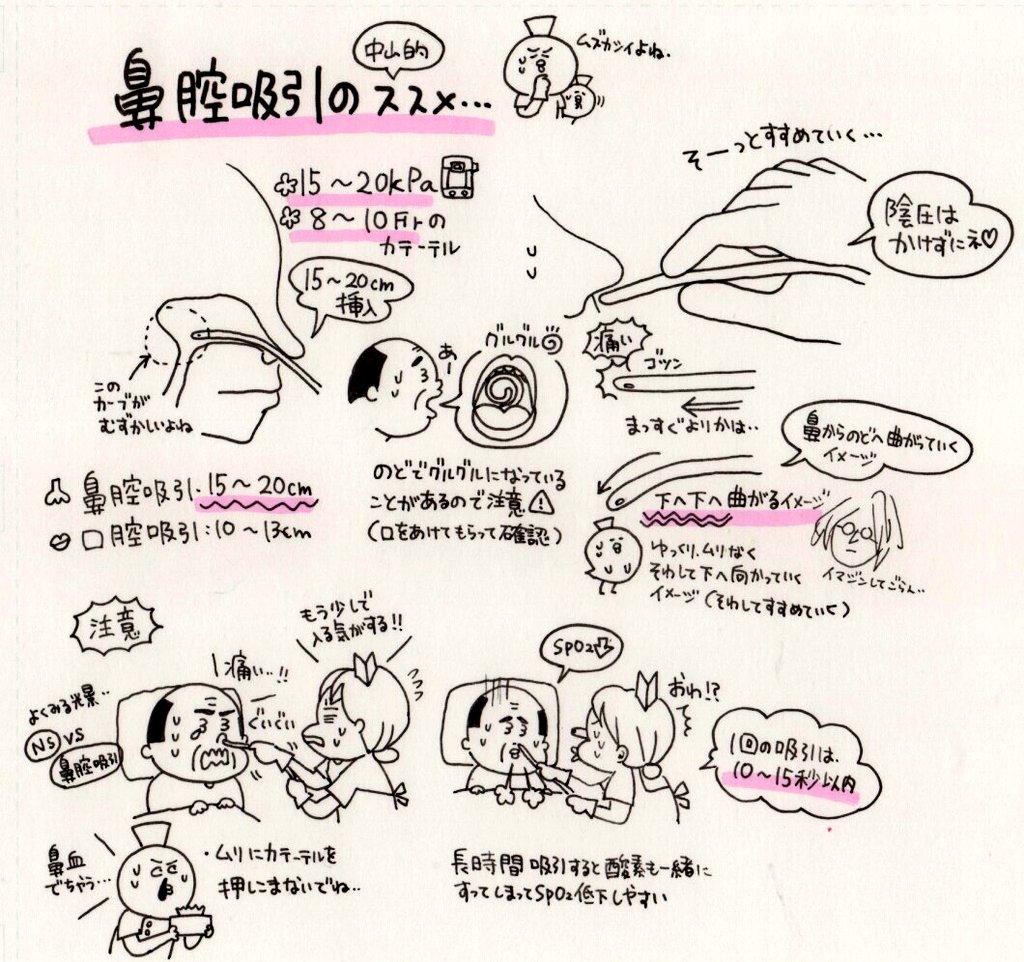 中山的
鼻腔吸引のススメ…
ムズカシイよね..
15～20kPa
8～10Frの
カテーテル
15～20cm
挿入
この
カーブが
むずかしいよね
あー
グルグル
そーっとすすめていく…
陰圧は
かけずにネ♡
痛い
ゴツン
まっすぐよりかは..
鼻からのどへ曲がっていく
イメージ
下へ下へ曲がるイメージ
鼻腔吸引.15～20cm
口腔吸引:10～13cm
のどでグルグルになっている
ことがあるので注意⚠
(口をあけてもらって確認)
ゆっくり.ムリなく
そわして下へ向かっていく
イメージ(そわしてすすめていく)
イマジンしてごらん..
注意
よくみる光景..
NS VS
鼻腔吸引
痛い..!!
ぐいぐい
もう少しで
入る気がする!!
SpO2⇩
おわ!?
1回の吸引は、
10～15秒以内
鼻血
でちゃう…
・ムリにカテーテルを
押しこまないでね..
長時間吸引すると酸素も一緒に
すってしまってSpO2低下しやすい